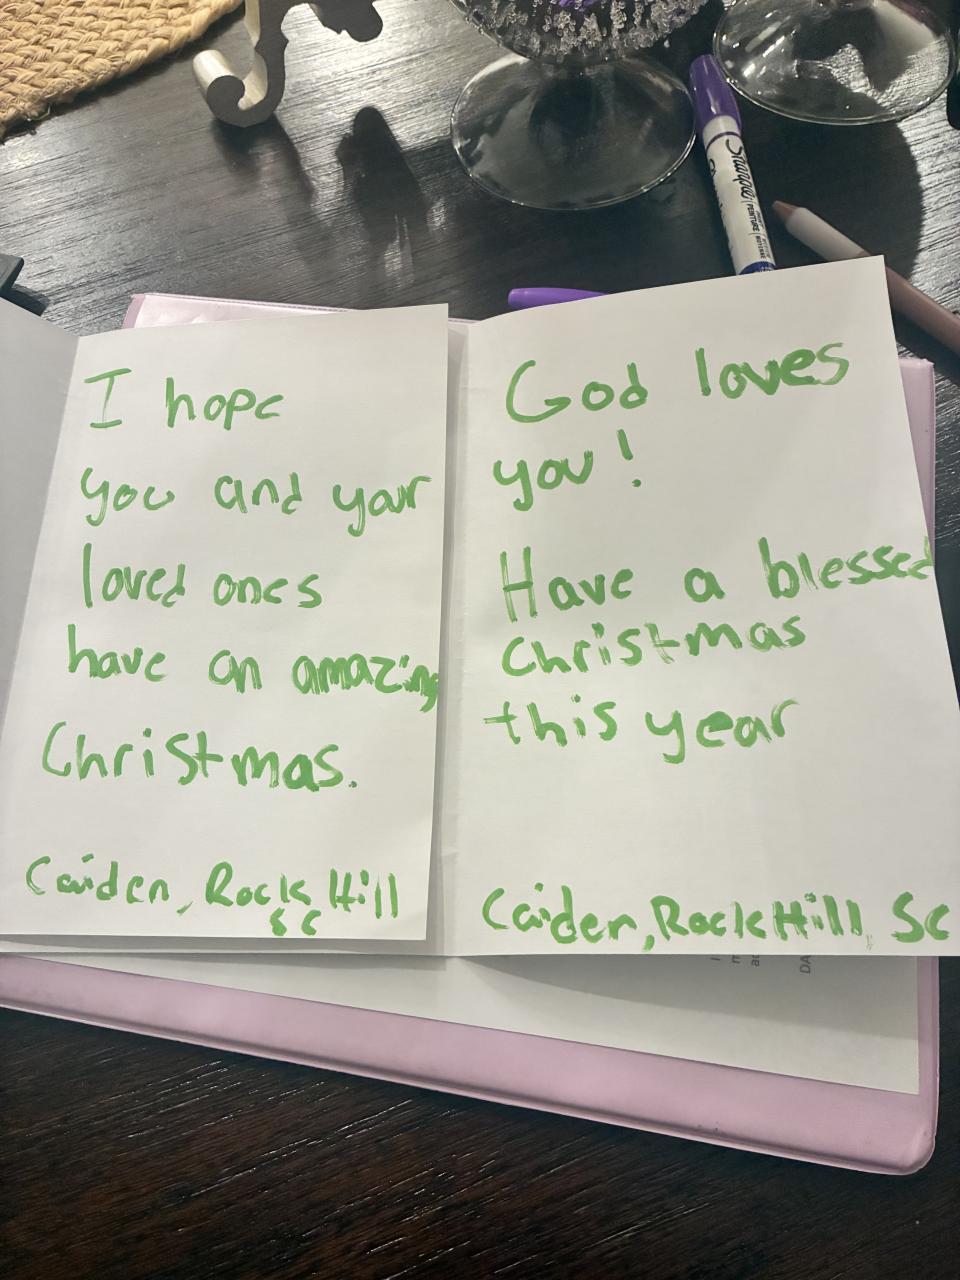 I hope
you and your
loved ones
have an amazing
Christmas.
Caiden, Rock Hill
SC
God loves
you!
Have a blessed
Christmas
this year
Caiden, Rock Hill, SC
Sharpie
PEINTURE
DA